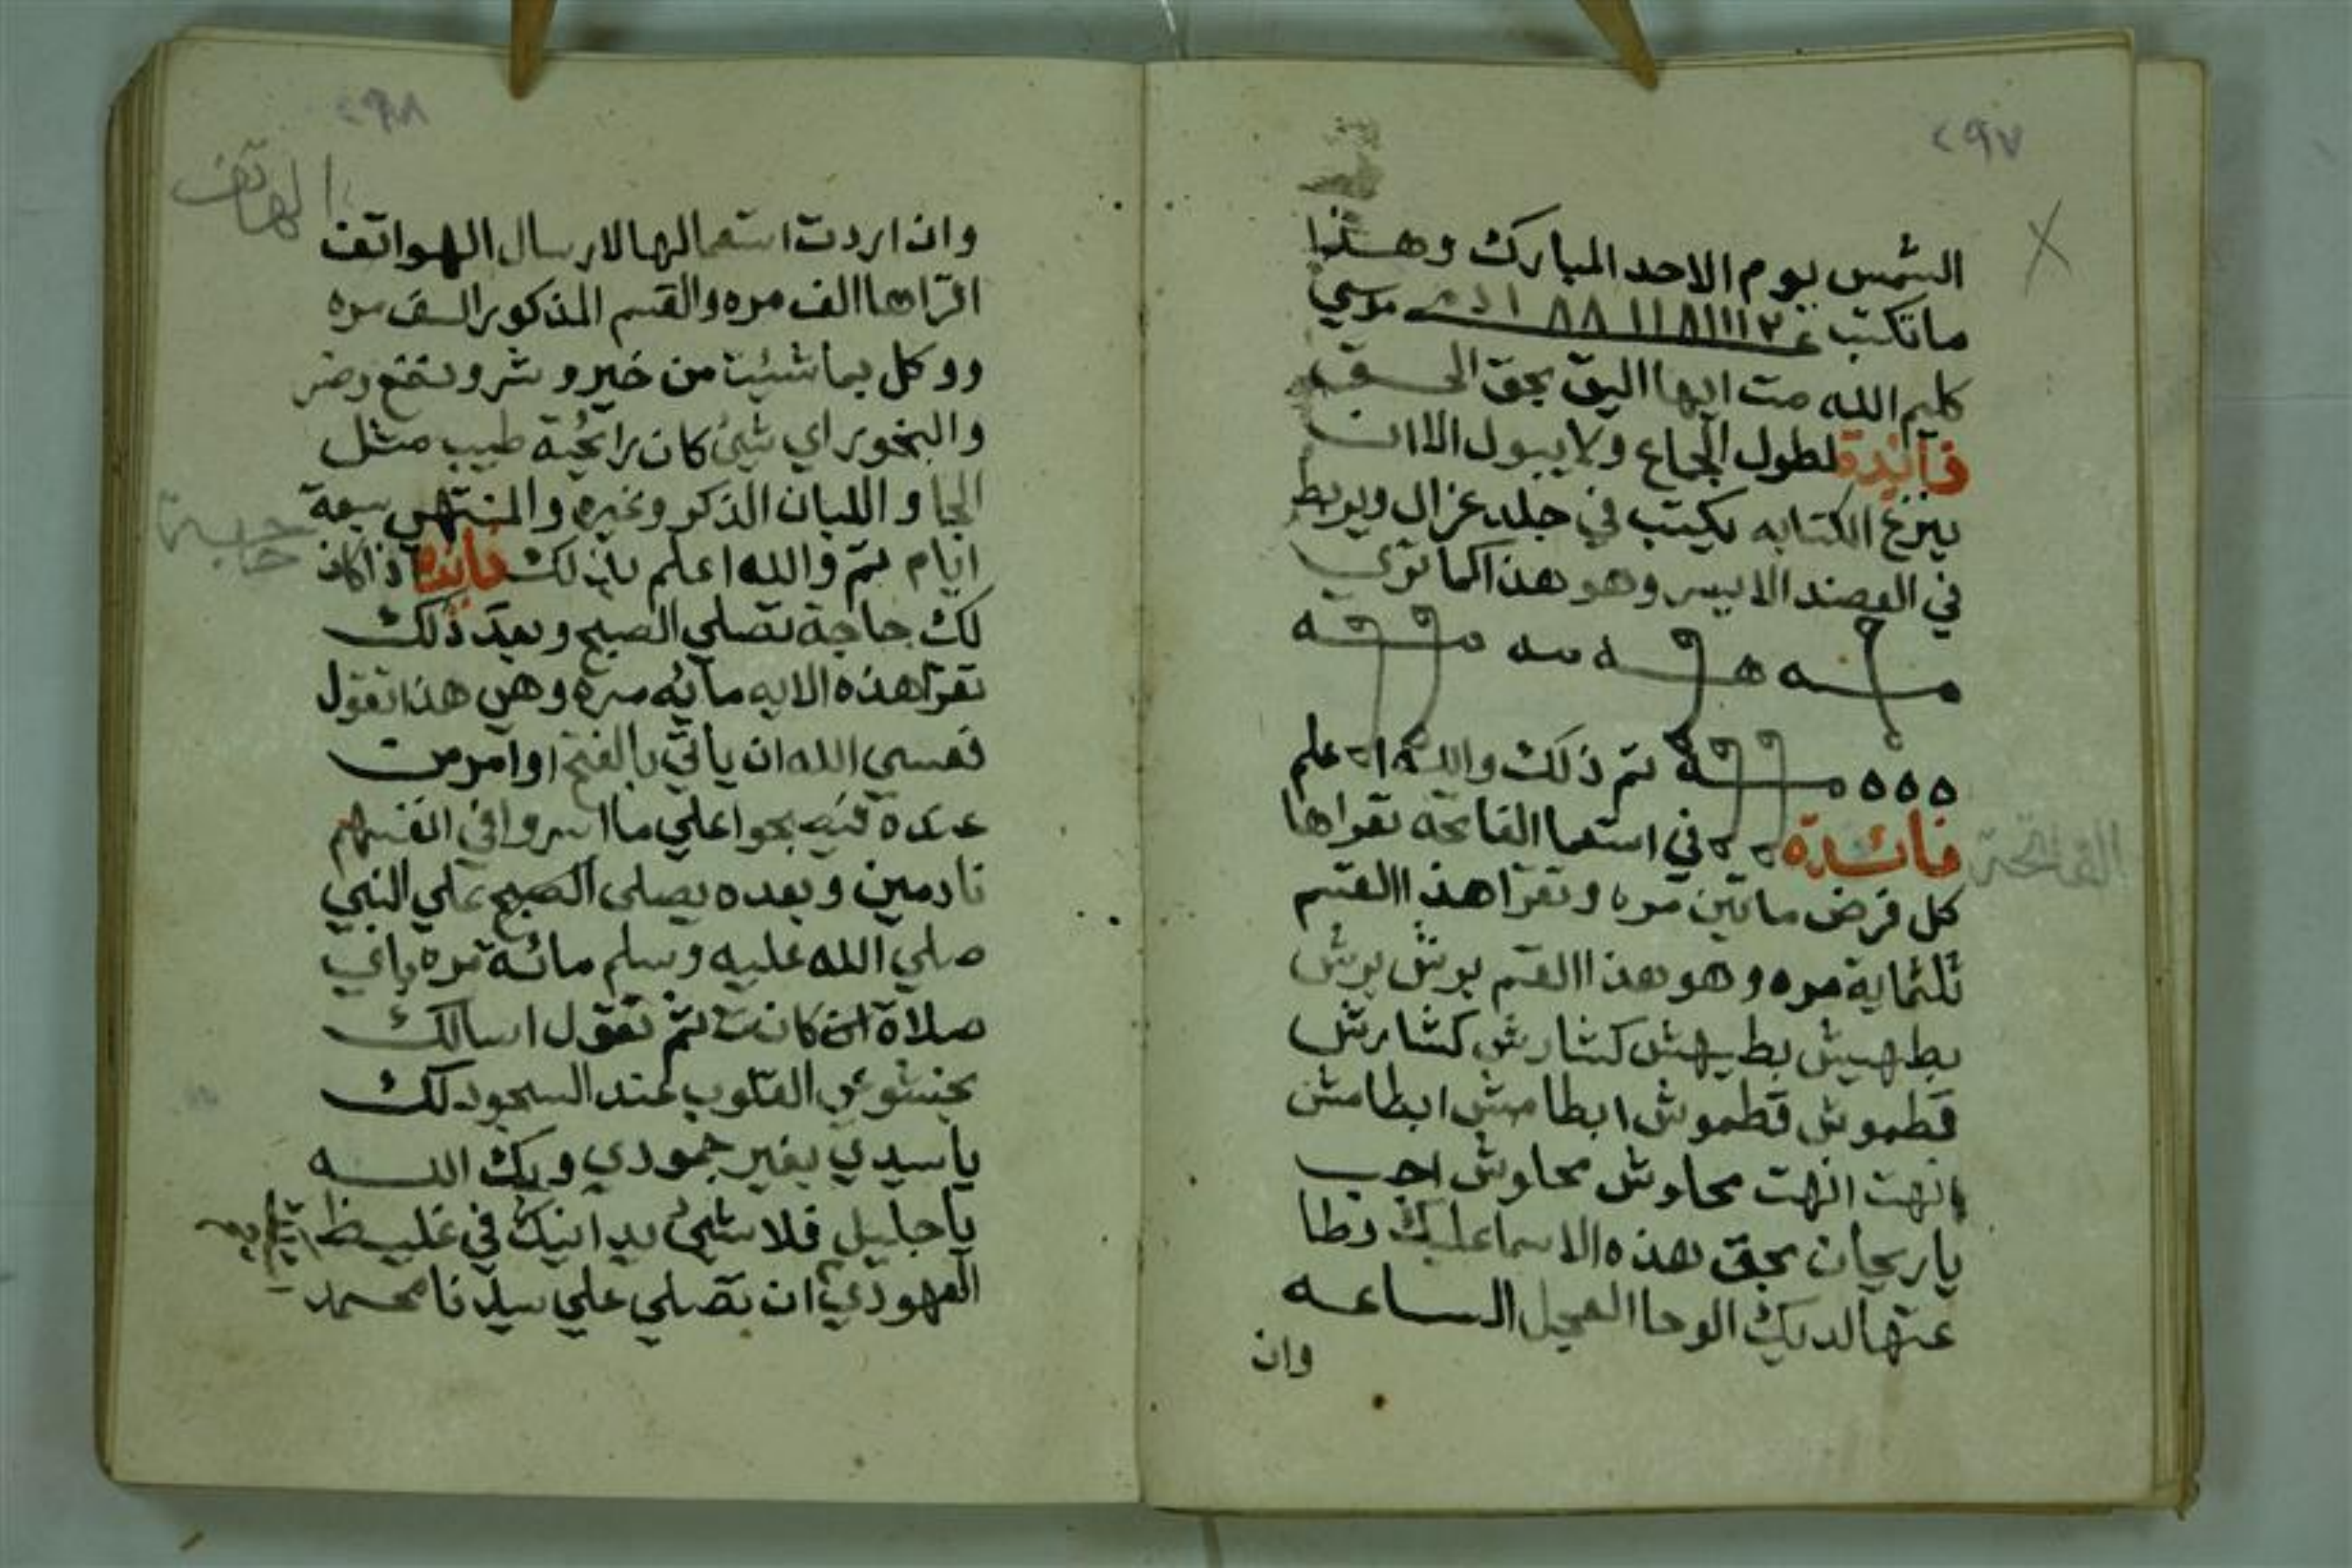 ٢٩٧
الشمس يوم الاحد المبارك وهذا
ما تكتب موسي
كليم الله مت ايها البق بحق الحق
فآئدة لطول الجماع ولا يبول الا ان
ينزع الكتابه يكتب في جلد غزال ويربط
في العضد الايسر وهو هذا كما تري
تم ذلك والله اعلم
فائدة في استعما الفاتحه تقراها
الفاتحة
كل فرض ماتين مره وتقرا هذا القسم
ثلثماية مره وهو هذا القسم برش برش
بطهيش بطيهش كشارش كشارش
قطموش قطموش ابطامش ابطامش
انهت انهت محلوش محلوش اجب
يا ريحان بحق هذه الاسما عليك وطا
عتها لديك الوحا العجل الساعه
وان
٢٩٨
الهاتف
وان اردت استعمالها لارسال الهواتف
اقراها الف مره والقسم المذكور الف مره
ووكل بما شئت من خير وشر ونفع وضر
والبخور اي شئ كان رائحية طيب مثل
الجا و اللبان الذكر وغيره والمنتهي سبعة
ايام تم والله اعلم بذلك فائدة اذا كان
حاجة
لك حاجة تصلي الصبح وبعد ذلك
تقرا هذه الايه مايه مرة وهي هذا تقول
فعسي الله ان ياتي بالفتح او امر من
عنده فيصبحوا علي ما اسروا في انفسهم
نادمين وبعده يصلى الصبح علي النبي
صلي الله عليه وسلم مائة مره باي
صلاة ان كانت ثم تقول اسالك
بخشوع القلوب عند السجود لك
يا سيدي بغير جمودي وبك الله
يا جليل فلا شئ يدانيك في غليظ
العهودي ان تصلي علي سيدنا محمد